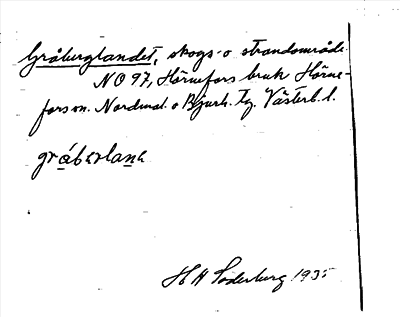 Gråberglandet, skogs- o strandområde
NO 97, Hörnefors bruk Hörne-
fors sn. Nordmal. o Bjurh. tg. Västerb. l.
gråbərlanə
H H Söderburg 1935